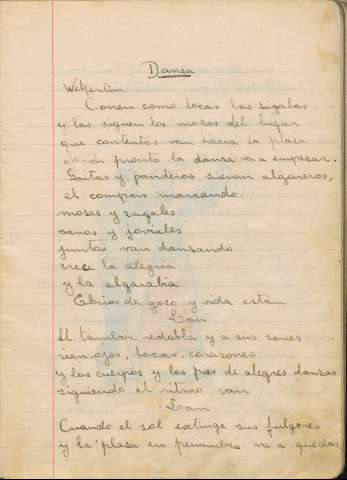 Danza
Wekerlin
Corren como locas las zagalas
y las siguen los mozos del lugar
que contentos van hacia la plasa
pronto la danza va a empesar.
Gaitas y panderos suenan algareros,
el compás marcando
mozas y zagales
sanos y joviales
juntos van danzando
crece la alegria
y la algarabia
Ebrios de gozo y vida están
Lan
El tambor redobla y a sus sones
rien ojos, bocas, corazones
y los cuerpos y los pies de alegres danzas
siguiendo el ritmo van
Lan
Cuando el sol extinge sus fulgores
y la plasa en penumbra va a quedar